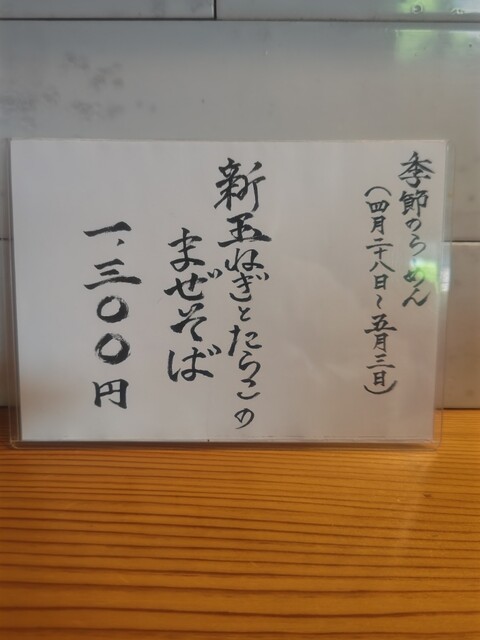 季節のらーめん
（四月二十八日〜五月三日）
新玉ねぎとたらこの
まぜそば
一、三〇〇円